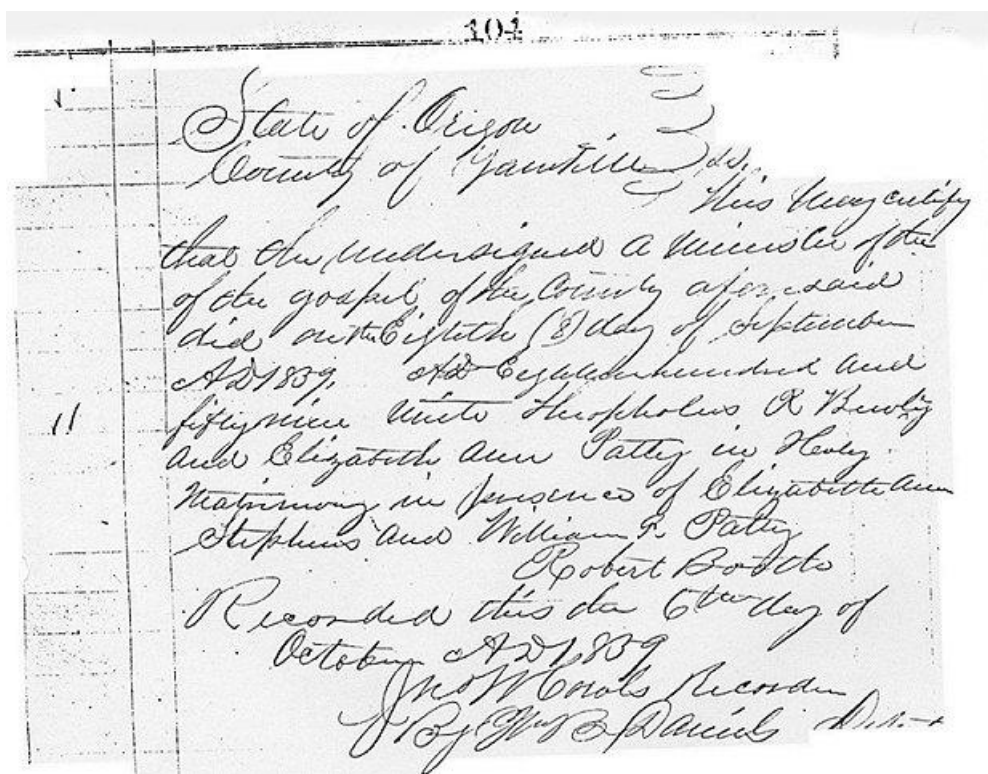 104
State of Origon
County of Yamhill SS.
This May certify
that the undersigned a Minister of the
of the gospel, of the County aforesaid
did on the Eighth (8) day of September
AD 1859, AD Eighteen hundred and
fifty nine Unite Theopholus R
and Elizabeth Ann Patty in Holy
Matrimony in presence of Elizabeth Ann
Stephens and William F. Patty
Robert
Recorded this the 6th day of
October AD 1859
11
Jno W Recorder
By Wm B Daniels